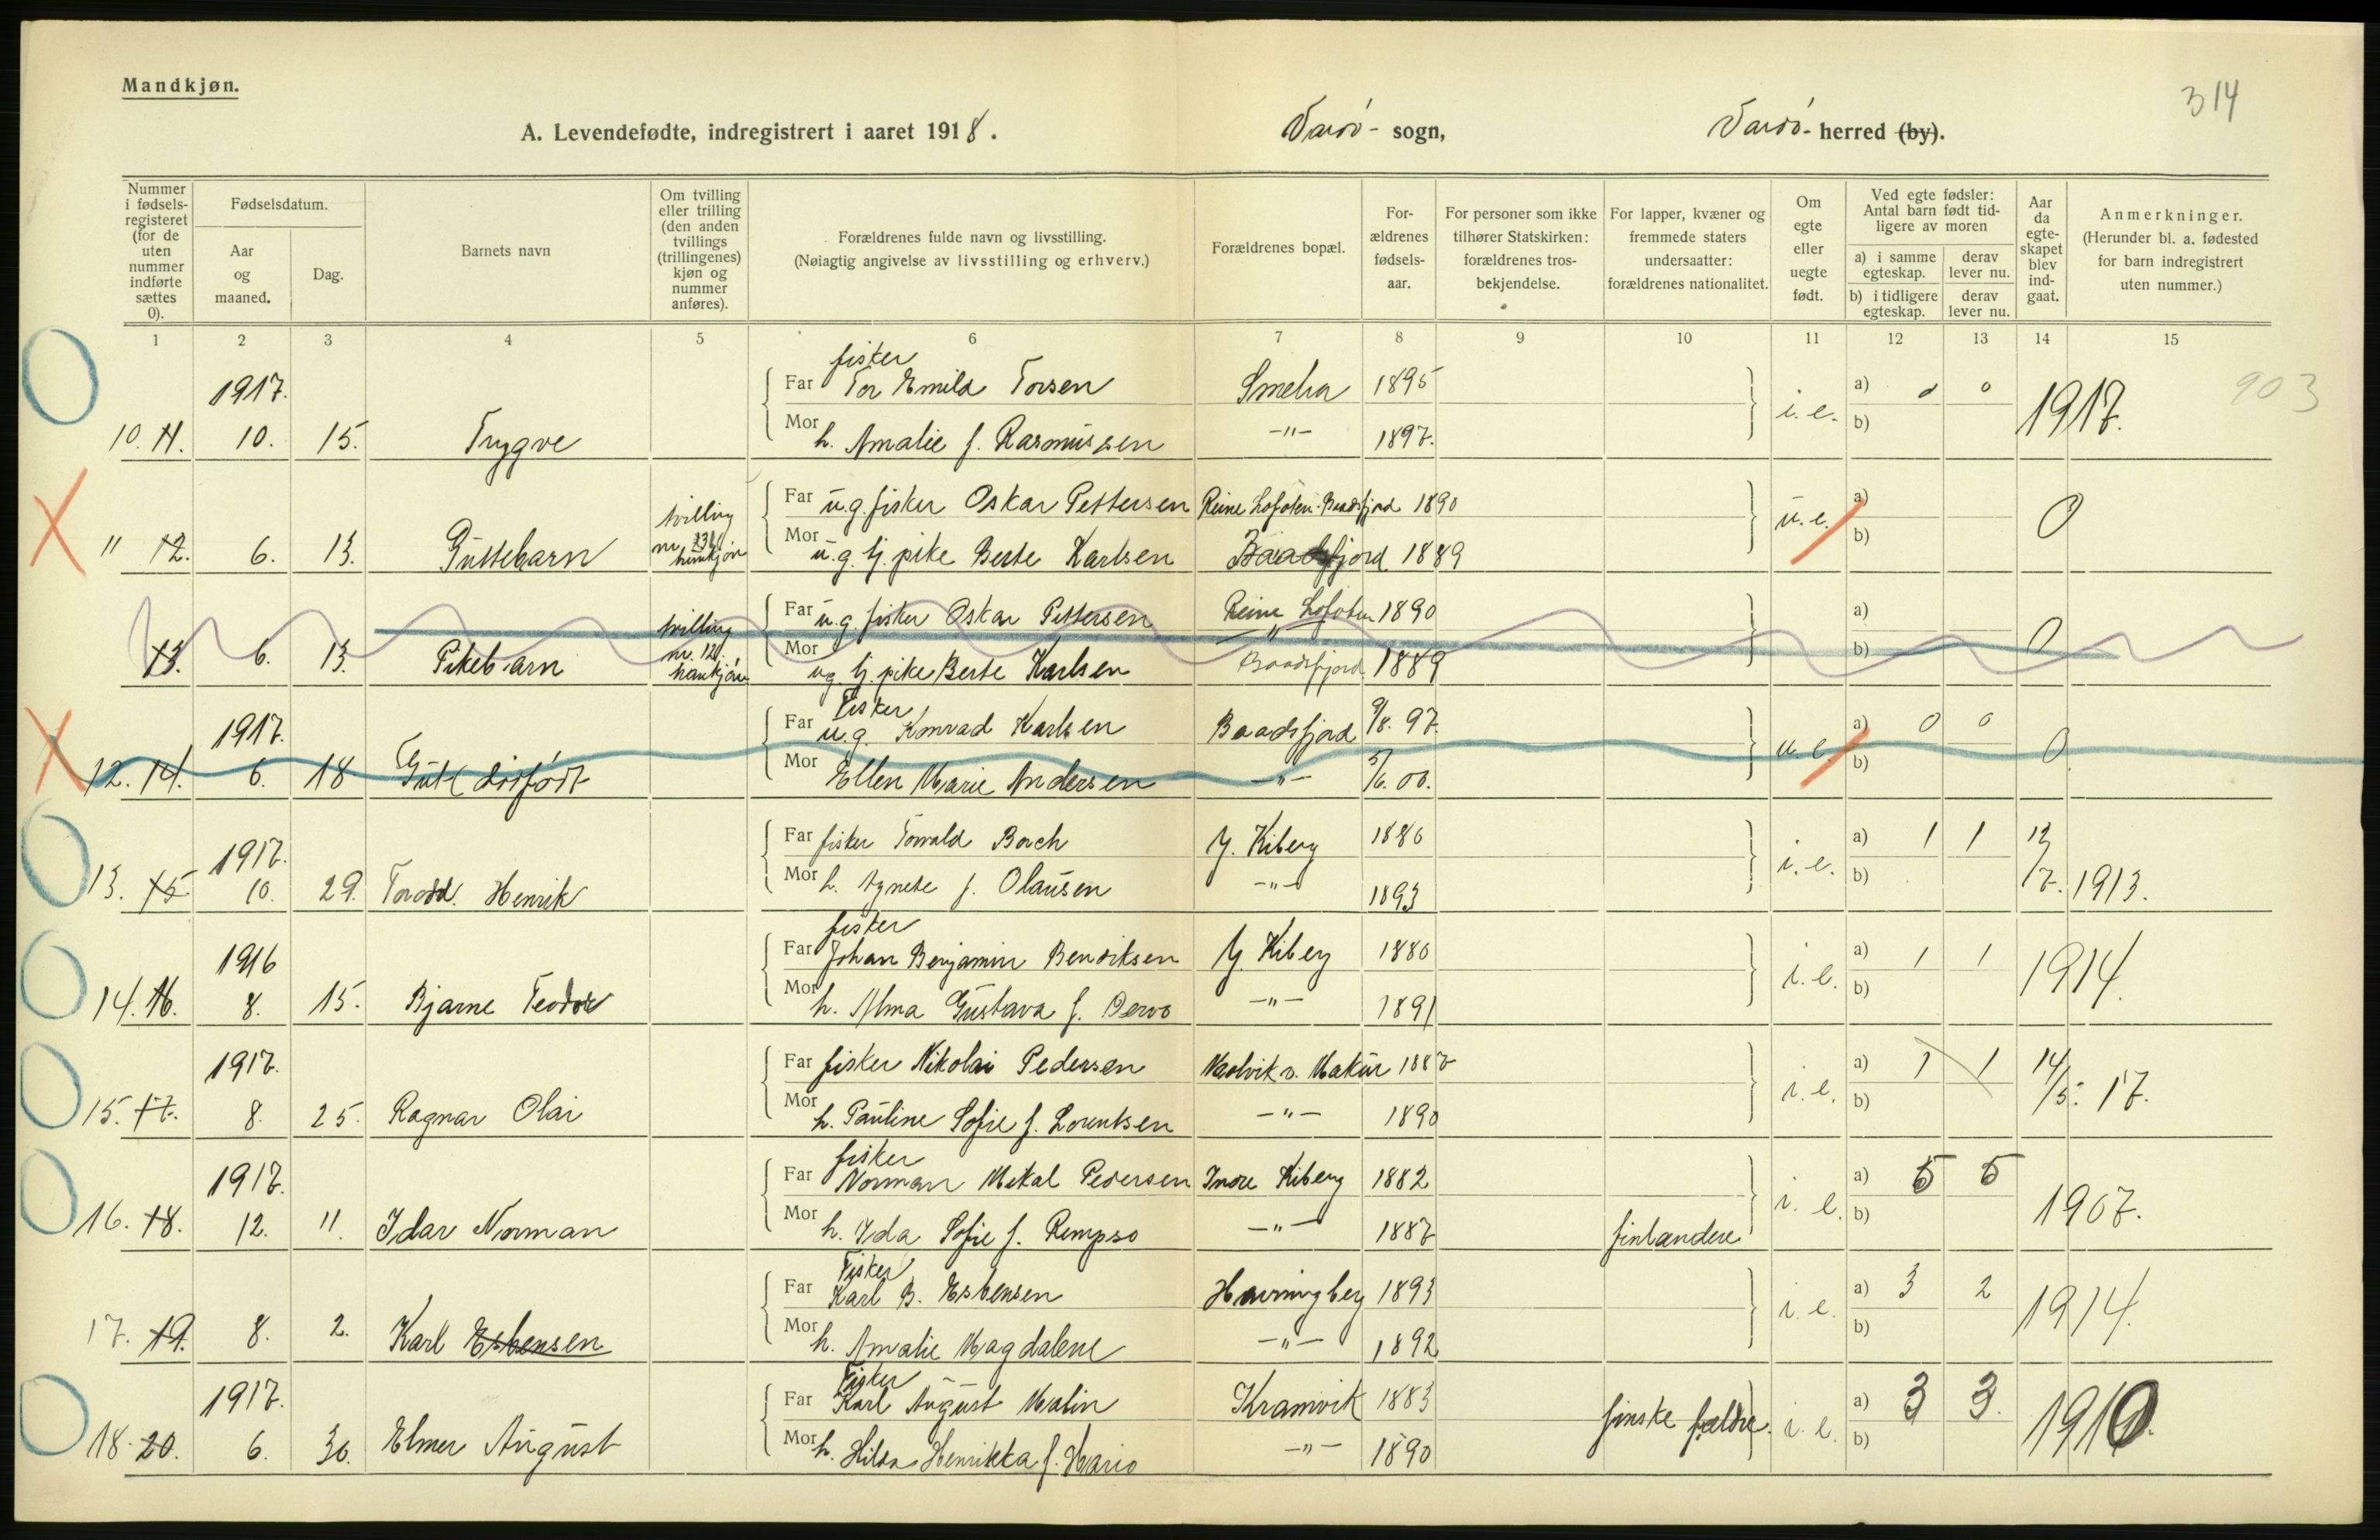 Mandkjøn.
314
A. Levendefødte, indregistrert i aaret 1918. Vardø- sogn, Vardø- herred (by).
Nummer i fødsels-registeret (for de uten nummer indførte sættes 0).
Fødselsdatum.
Aar og maaned.
Dag.
Barnets navn
Om tvilling eller trilling (den anden tvillings (trillingenes) kjøn og nummer anføres).
Forældrenes fulde navn og livsstilling.
(Nøiagtig angivelse av livsstilling og erhverv.)
Forældrenes bopæl.
For-ældrenes fødsels-aar.
For personer som ikke tilhører Statskirken: forældrenes tros-bekjendelse.
For lapper, kvæner og fremmede staters undersaatter: forældrenes nationalitet.
Om egte eller uegte født.
Ved egte fødsler: Antal barn født tid-ligere av moren
a) i samme egteskap.
derav lever nu.
b) i tidligere egteskap.
derav lever nu.
Aar da egte-skapet blev ind-gaat.
Anmerkninger.
(Herunder bl. a. fødested for barn indregistrert uten nummer.)
1 2 3 4 5 6 7 8 9 10 11 12 13 14 15
fisker
1917. Far Tor Emild Torsen 1895 a) 0 0 903
10. 11. 10. 15. Trygve Mor h. Amalie f. Rasmussen -"- 1897. i. e. b) 1917.
tvilling Far u.g. fisker Oskar Pettersen Reine Lofoten. Baadsfjord 1890 a)
" 12. 6. 13. Guttebarn nr. 13 hunkjøn Mor u.g. tj. pike Berte Karlsen Baadsfjord 1889 u. e. b) 0
tvilling Far u.g. fisker Oskar Pettersen Reine Lofoten 1890 a)
13. 6. 13. Pikebarn nr. 12. hankjøn Mor ug tj. pike Berte Karlsen " Baadsfjord 1889 b) 0
Fisker
1917. Far u.g. Konrad Karlsen Baadsfjord 9/8. 97. a) 0 0
12. 14. 6. 18 Gut (dødfødt Mor Ellen Marie Andersen -"- 5/6. 00. u. e. b) 0
1917. Far fisker Torvald Borch Y. Kiberg 1886 a) 1 1
13. 15 10. 29. Torodd. Henrik Mor h. Agnete f. Olausen -"- 1893 i. e. b) 12/7. 1913.
fisker
1916 Far Johan Benjamin Bendiksen Y. Kiberg 1880 a) 1 1
14. 16. 8. 15. Bjarne Teodor Mor h. Alma Gustava f. Dervo -"- 1891 i. e. b) 1914.
1917. Far fisker Nikolai Pedersen 1887 a) 1 1
15. 17. 8. 25. Ragnar Olai Mor h. Pauline Sofie f. Lorentsen -"- 1890 i. e. b) 14/5. 17.
fisker
1917. Far Norman Mikal Pedersen Indre Kiberg 1882 a) 5 5
16. 18. 12. 11. Idar Norman Mor h. Ida Sofie f. Rempso -"- 1887 finlændere i. e. b) 1907.
Fisker
Far Karl B. Esbensen Havningberg 1893 a) 3 2
17. 19. 8. 2. Karl Esbensen Mor h. Amalie Magdalene -"- 1892 i. e. b) 1914.
Fisker
1917. Far Karl August Malin Kramvik 1883 a) 3 3.
18. 20. 6. 30. Elmer August Mor h. Hilda Henrikka f. Mario -"- 1890 finske fældre. i. e. b) 1910.